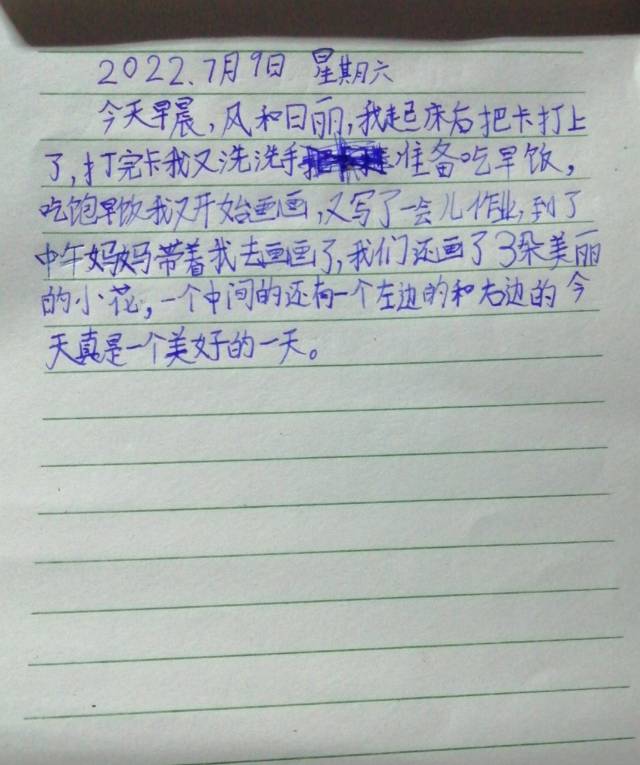 2022.7月9日 星期六
今天早晨,风和日丽,我起床后把卡打上
了,打完卡我又洗洗手准备吃早饭,
吃饱早饭我又开始画画,又写了一会儿作业,到了
中午妈妈带着我去画画了,我们还画了3朵美丽
的小花,一个中间的还有一个左边的和右边的今
天真是一个美好的一天。